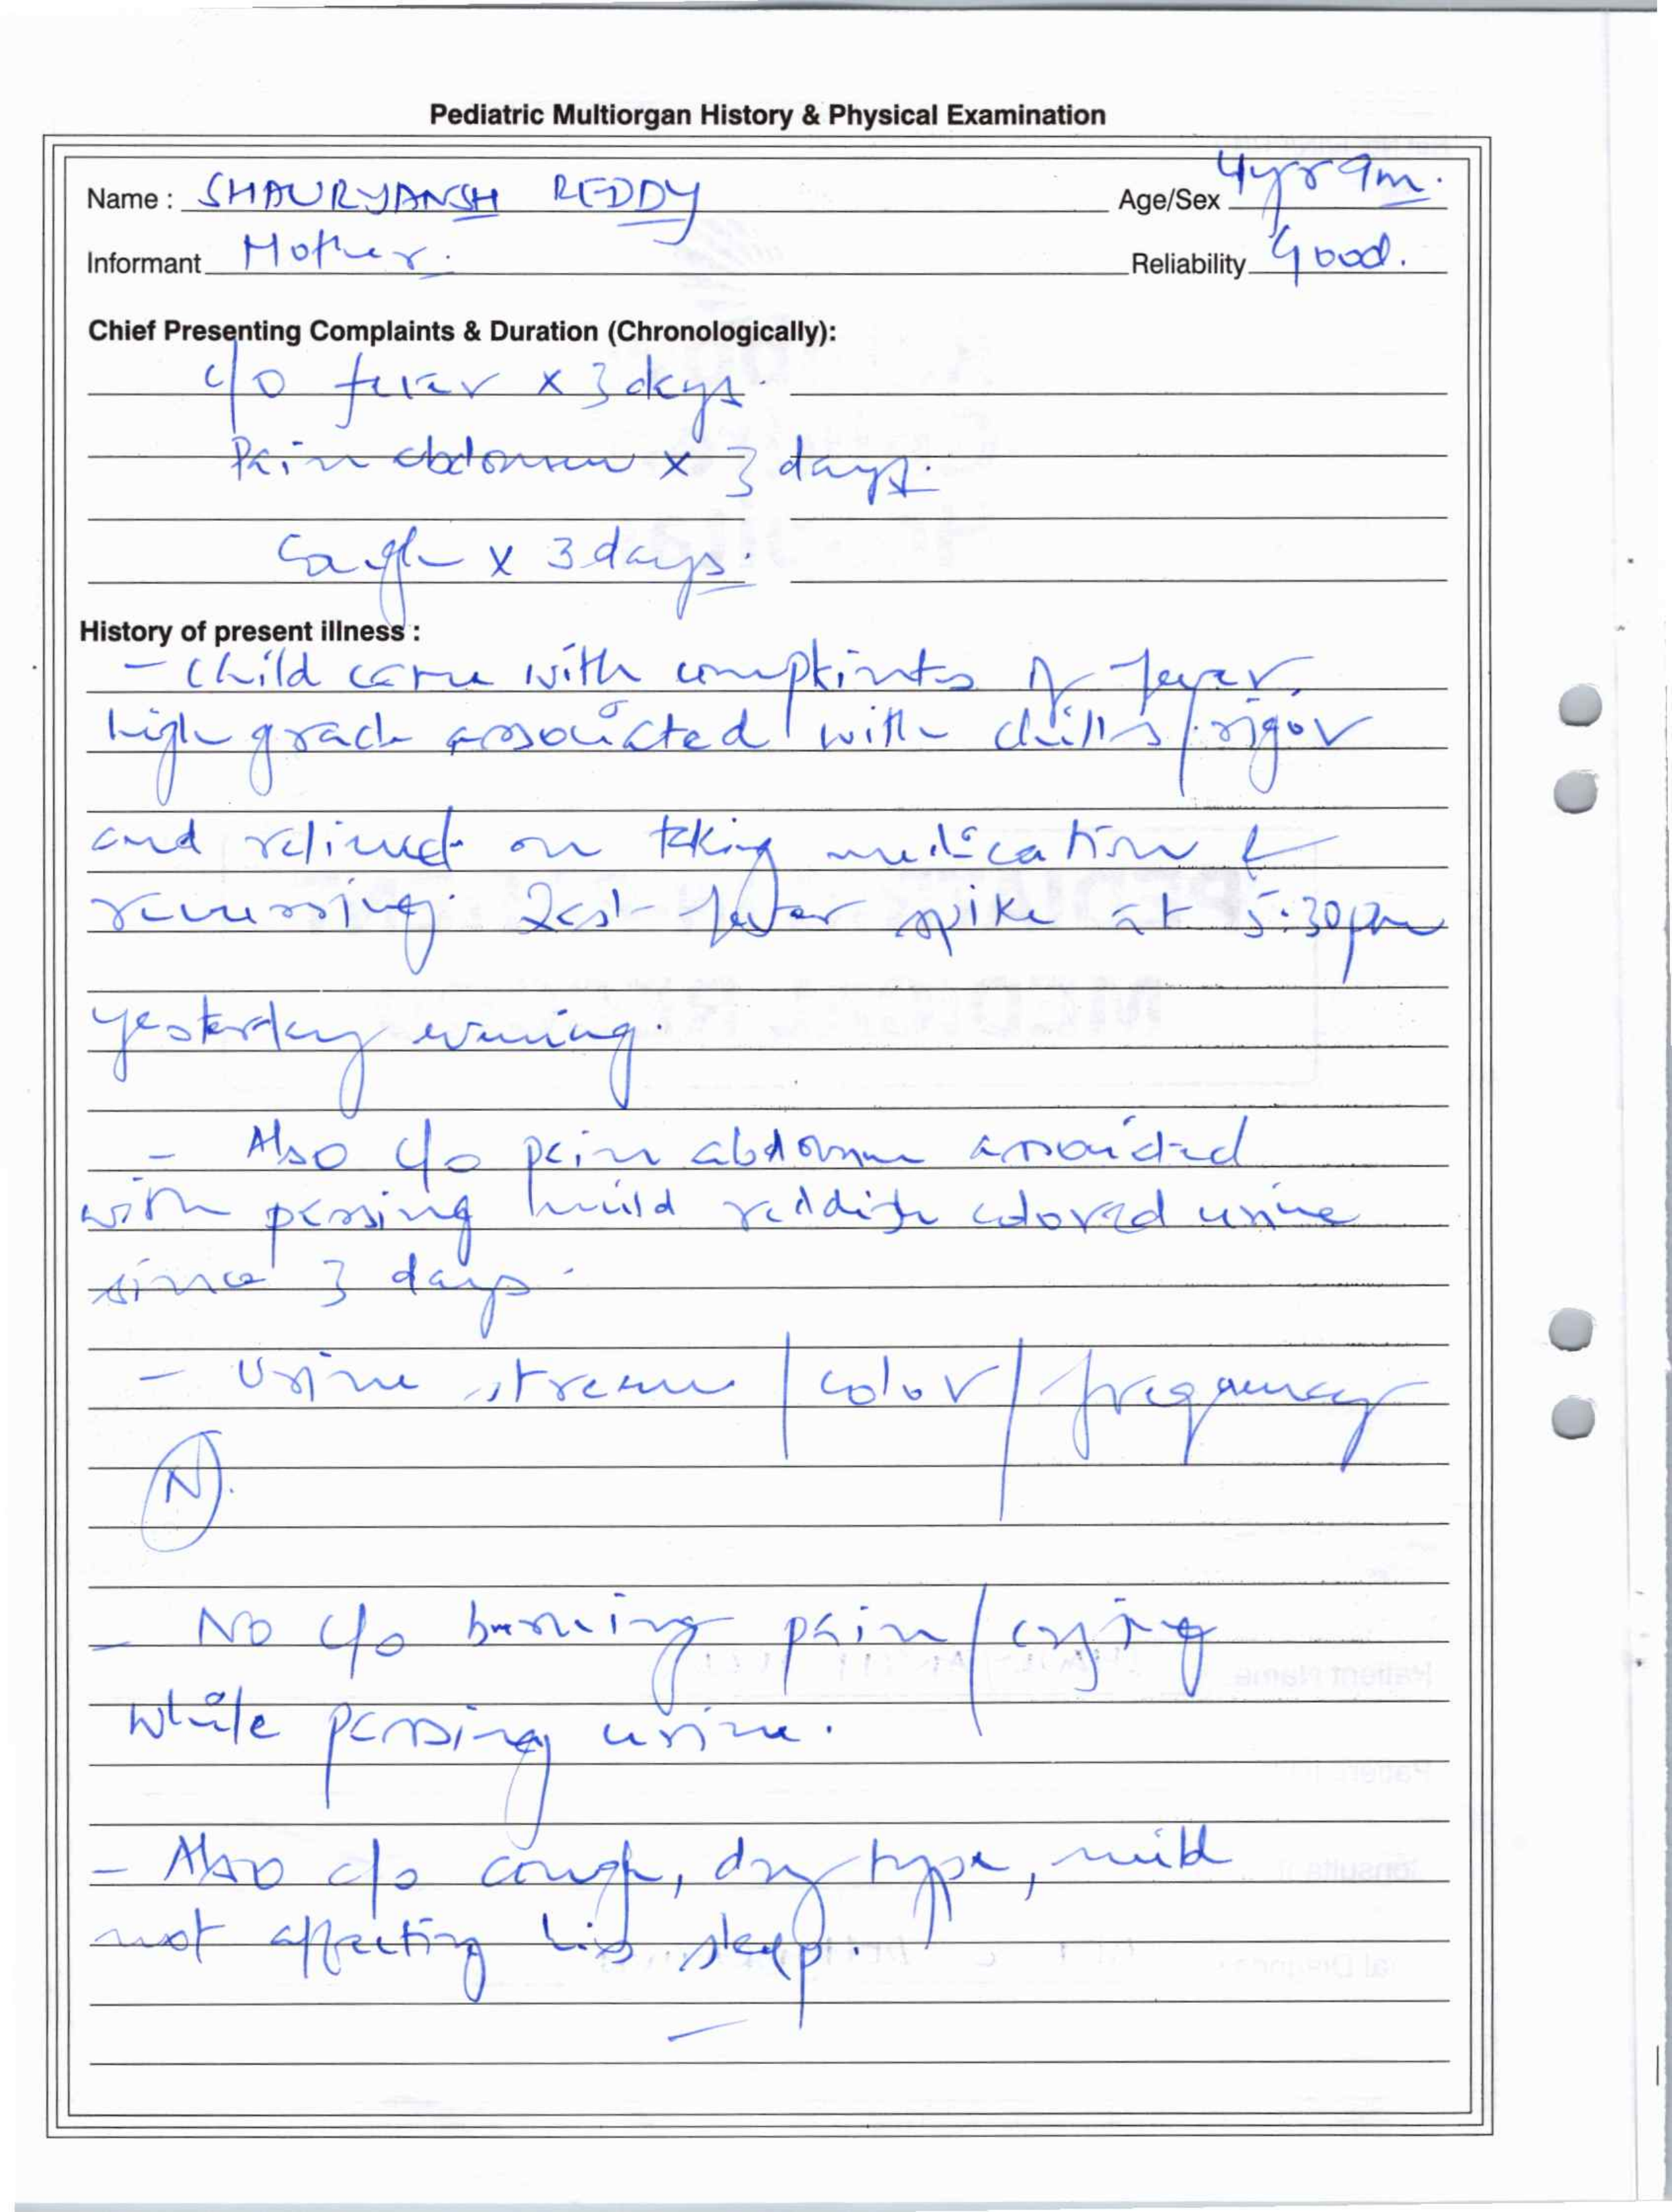 Pediatric Multiorgan History & Physical Examination
Name : SHAURYANSH REDDY Age/Sex 4yrs 9m.
Informant Mother. Reliability Good.
Chief Presenting Complaints & Duration (Chronologically):
c/o fever x 3 days.
Pain abdomen x 3 days.
Cough x 3 days.
History of present illness :
- Child came with complaints of fever,
high grade associated with chills/rigor
and relieved on taking medication &
recurring. Last fever spike at 5:30pm
yesterday evening.
- Also c/o pain abdomen associated
with passing mild reddish colored urine
since 3 days.
- Urine stream / color / frequency
(N).
- No c/o burning pain / crying
while passing urine.
- Also c/o cough, dry type, mild
not affecting his sleep.